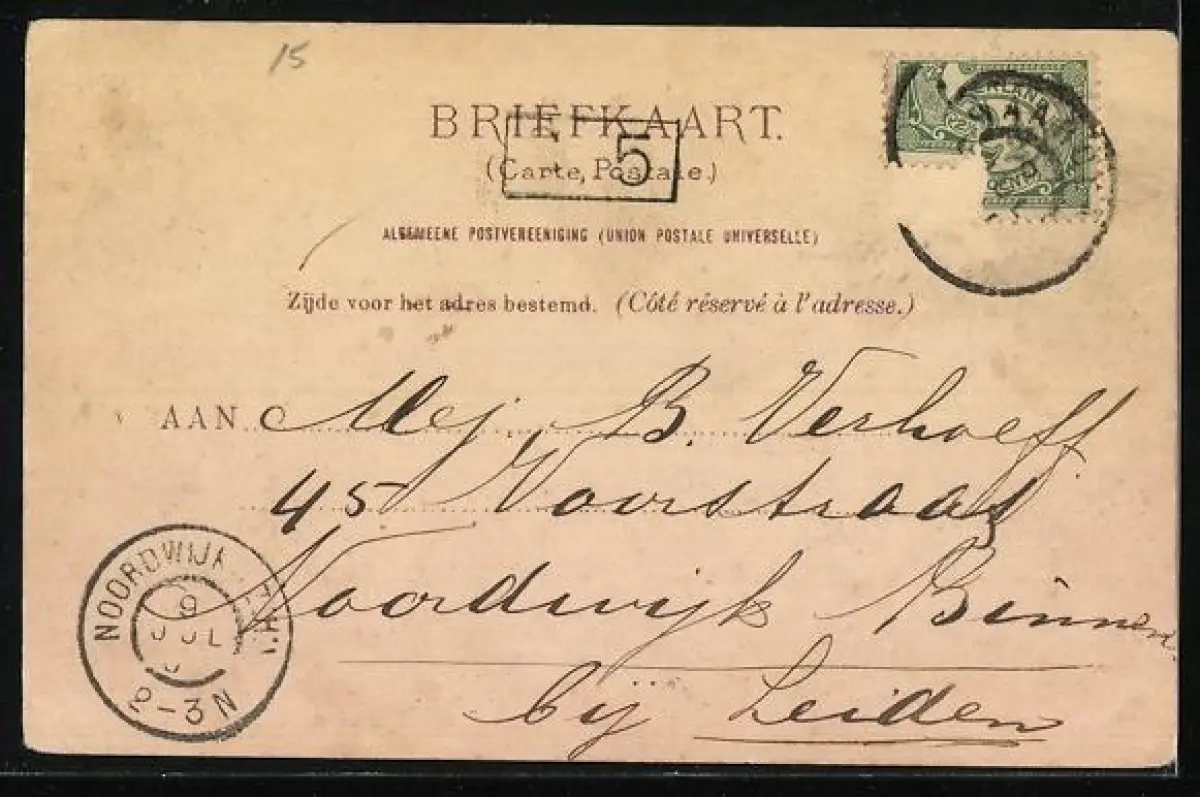 15
BRIEFKAART.
5
(Carte Postale.)
ALGEMEENE POSTVEREENIGING (UNION POSTALE UNIVERSELLE)
Zijde voor het adres bestemd. (Côté réservé à l'adresse.)
AAN Mej B. Verhoeff
45 Voorstraat
Noordwijk Binnen
bij Leiden
NOORDWIJK
9
JUL
2-3N